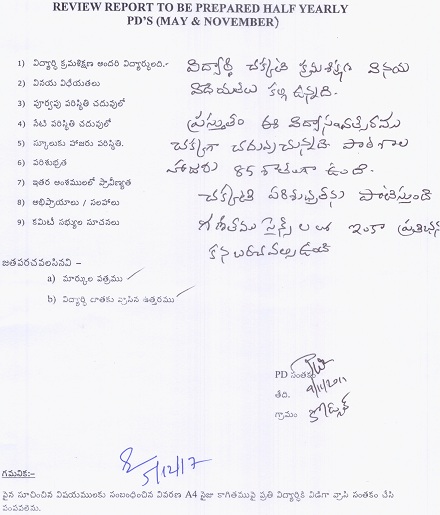 REVIEW REPORT TO BE PREPARED HALF YEARLY
PD'S (MAY & NOVEMBER)
1) విద్యార్థి క్రమశిక్షణ అందరి విద్యార్థులది.-
విద్యార్థి చక్కటి క్రమశిక్షణ వినయ
2) వినయ విధేయతలు
విధేయతలు కల్గి ఉన్నది.
3) పూర్వపు పరిస్థితి చదువులో
4) నేటి పరిస్థితి చదువులో
ప్రస్తుతం ఈ విద్యాసంవత్సరము
5) స్కూలుకు హాజరు పరిస్థితి.
చక్కగా చదువుచున్నది పాఠశాల
6) పరిశుభ్రత
హాజరు 85 శాతంగా ఉంది.
7) ఇతర అంశములలో ప్రావీణ్యత
చక్కటి పరిశుభ్రతను పాటిస్తుంది
8) అభిప్రాయాలు / సలహాలు
9) కమిటీ సభ్యుల సూచనలు
గణితము సైన్స్ లలో ఇంకా ప్రతిభను
కనబరచవలసి ఉంది
జతపరచవలసినవి –
a) మార్కుల పత్రము
b) విద్యార్థి దాతకు వ్రాసిన ఉత్తరము
PD సంతకం
తేది.
గ్రామం
5/12/17
గమనిక:-
పైన సూచించిన విషయములకు సంబంధించిన వివరణ A4 సైజు కాగితముపై ప్రతి విద్యార్థికి విడిగా వ్రాసి సంతకం చేసి
పంపవలెను.